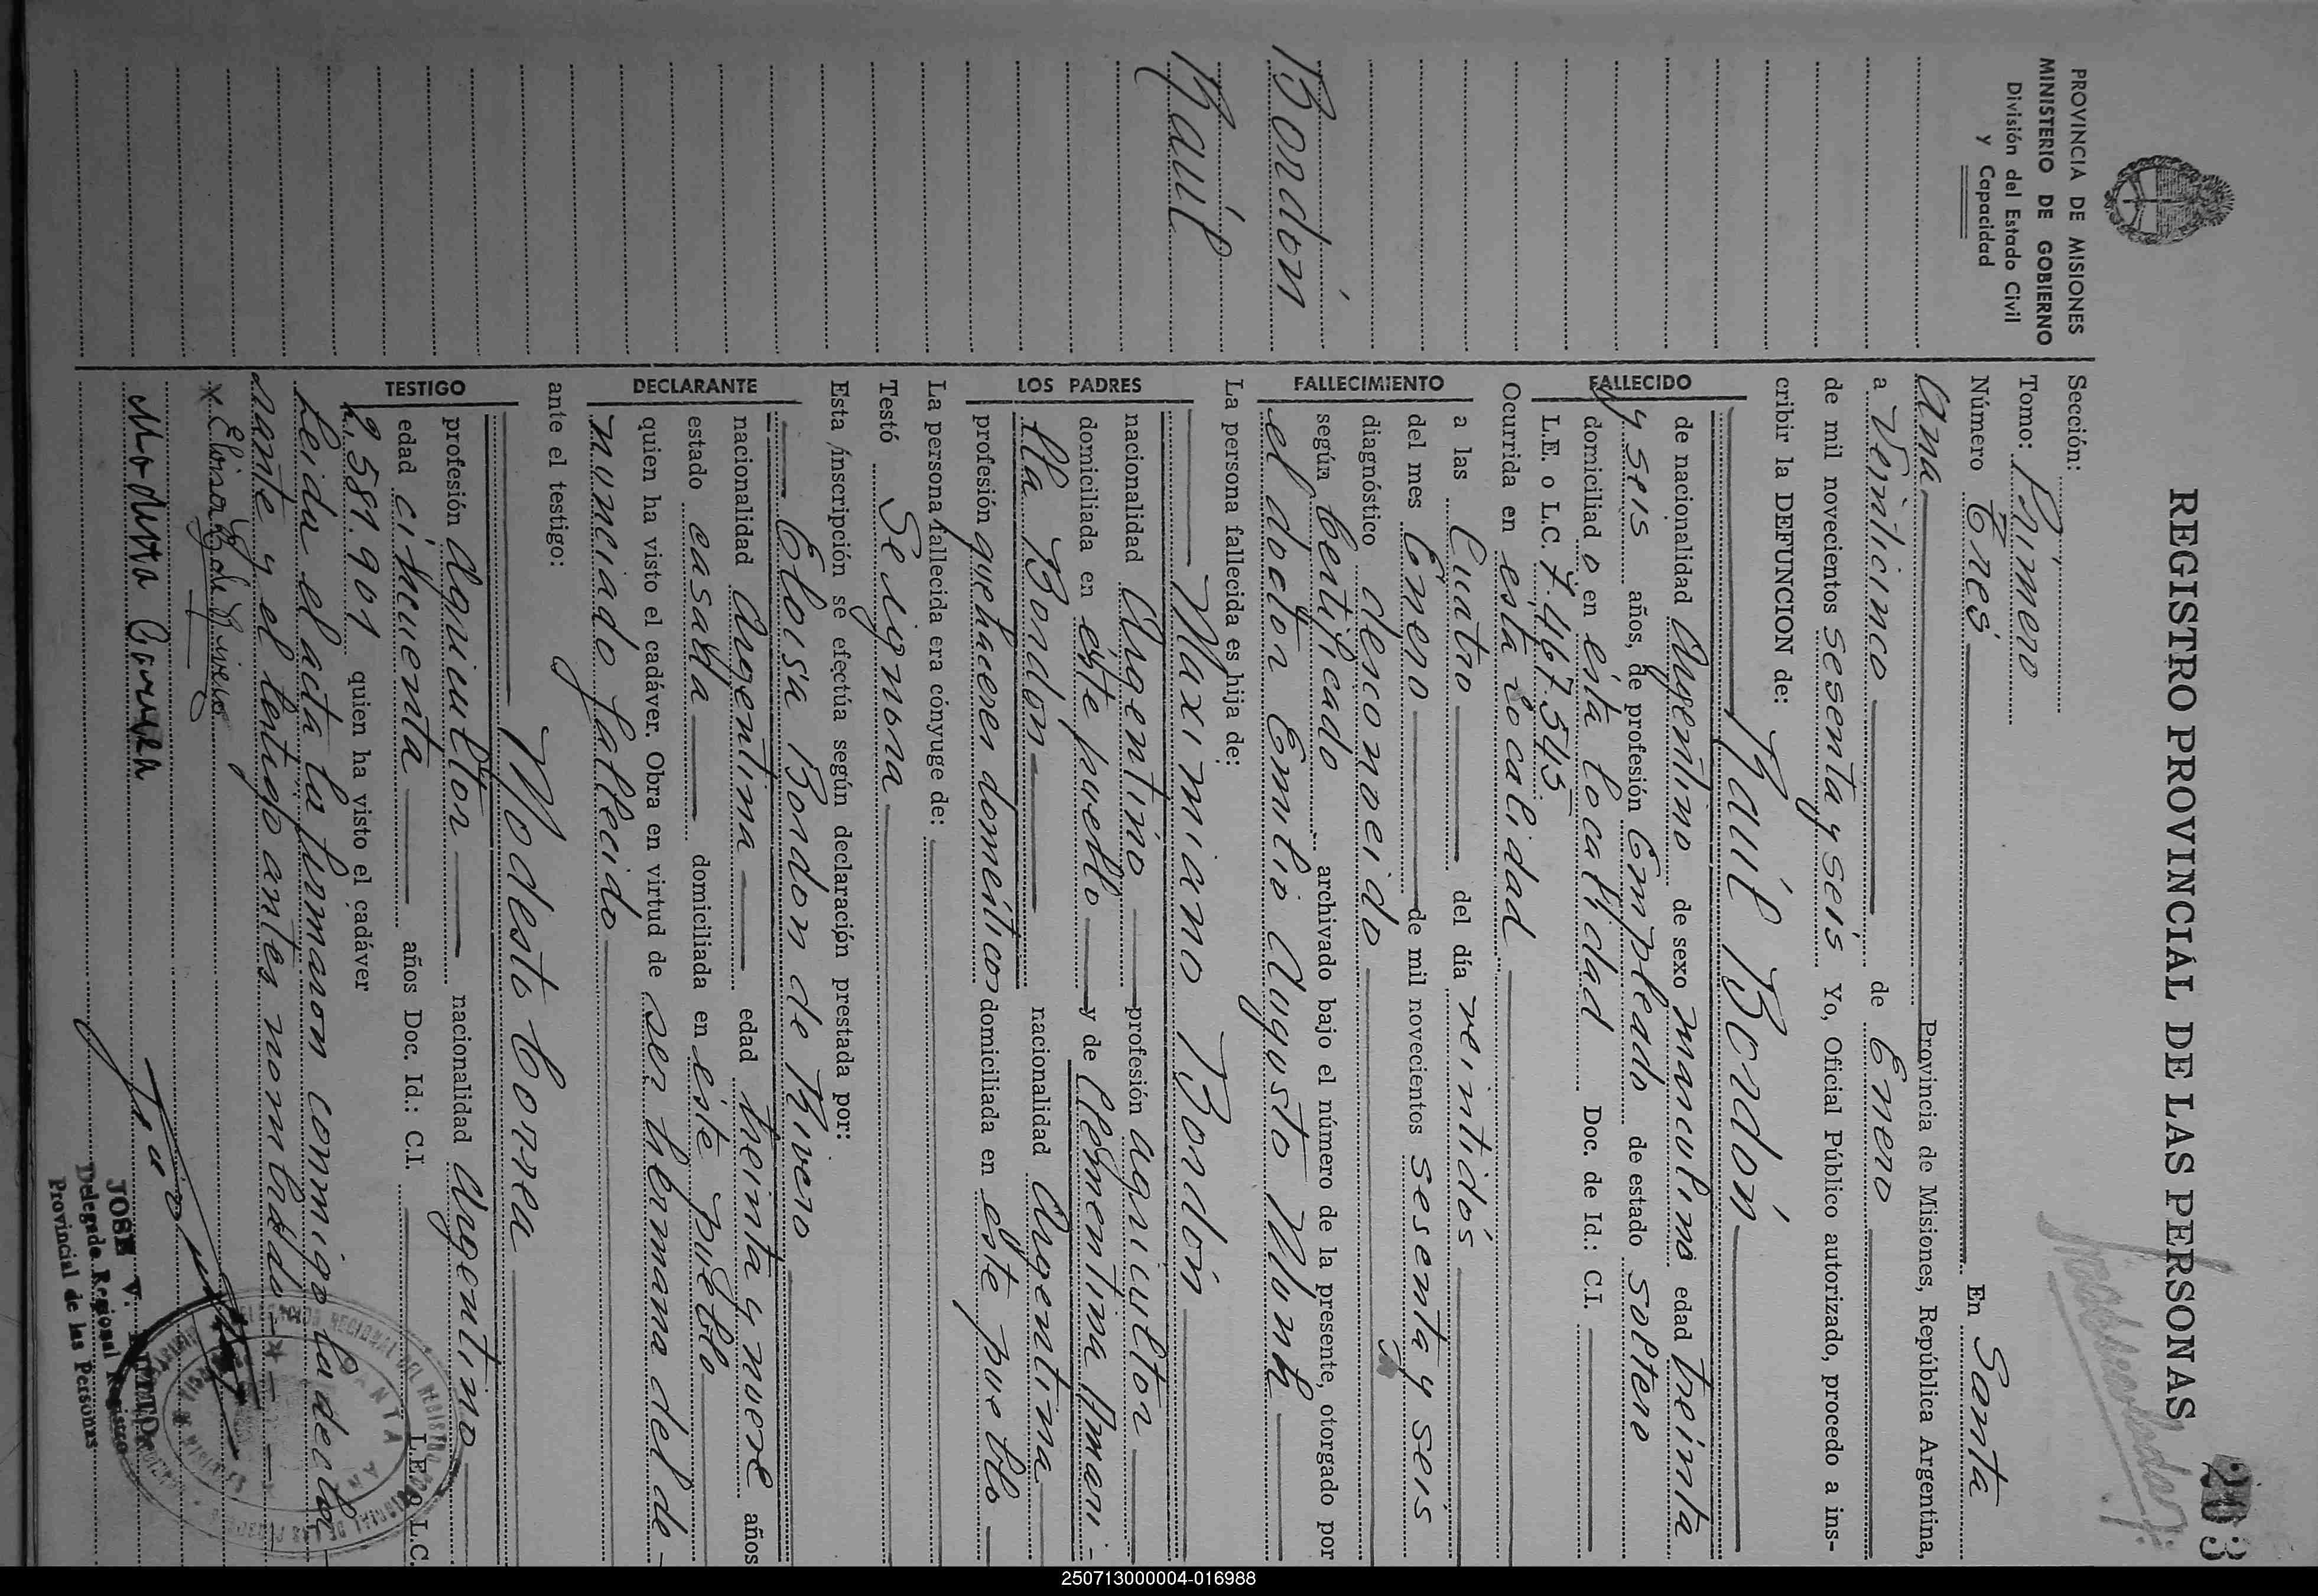 REGISTRO PROVINCIAL DE LAS PERSONAS
203
PROVINCIA DE MISIONES
MINISTERIO DE GOBIERNO
División del Estado Civil
y Capacidad
Bordón
Raúl
Sección:
Tomo: Primero
Número Tres En Santa
Ana Provincia de Misiones, República Argentina,
a Veinticinco de Enero
de mil novecientos sesenta y seis Yo, Oficial Público autorizado, procedo a ins-
cribir la DEFUNCION de:
Raúl Bordón
FALLECIDO
de nacionalidad Argentino de sexo masculino edad treinta
y seis años, de profesión Empleado de estado soltero
domiciliad o en esta localidad Doc. de Id.: C.I.
L.E. o L.C. 7.467.545
Ocurrida en esta localidad
FALLECIMIENTO
a las Cuatro del día veintidós
del mes Enero de mil novecientos sesenta y seis
diagnóstico desconocido
según certificado archivado bajo el número de la presente, otorgado por
el doctor Emilio Augusto Munk
La persona fallecida es hija de:
Maximiano Bordón
LOS PADRES
nacionalidad Argentino profesión agricultor
domiciliada en este pueblo y de Clementina Amari-
lla Bordón nacionalidad Argentina
profesión quehaceres domésticos domiciliada en este pueblo
La persona fallecida era cónyuge de:
Testó Se ignora
Esta inscripción se efectúa según declaración prestada por:
Eloisa Bordon de Rivero
DECLARANTE
nacionalidad Argentina edad treinta y nueve años
estado casada domiciliada en este pueblo
quien ha visto el cadáver. Obra en virtud de ser hermana del de-
nunciado fallecido
ante el testigo:
Modesto Correa
TESTIGO
profesión Agricultor nacionalidad Argentino
edad cincuenta años Doc. Id.: C.I. L.E. o L.C.
2.581.901 quien ha visto el cadáver
Leida el acta la firmaron conmigo la decla
rante y el testigo antes nombrado
x Eloisa B de Rivero
Modesto Correa
JOSE V.
Delegado Regional Registro
Provincial de las Personas
250713000004-016988